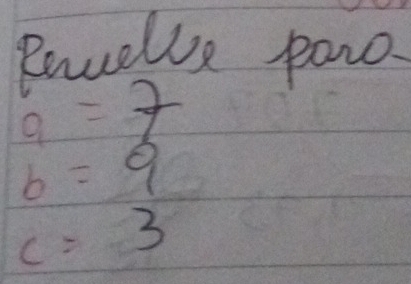 Resuelve para
a = 7
b = 9
c = 3